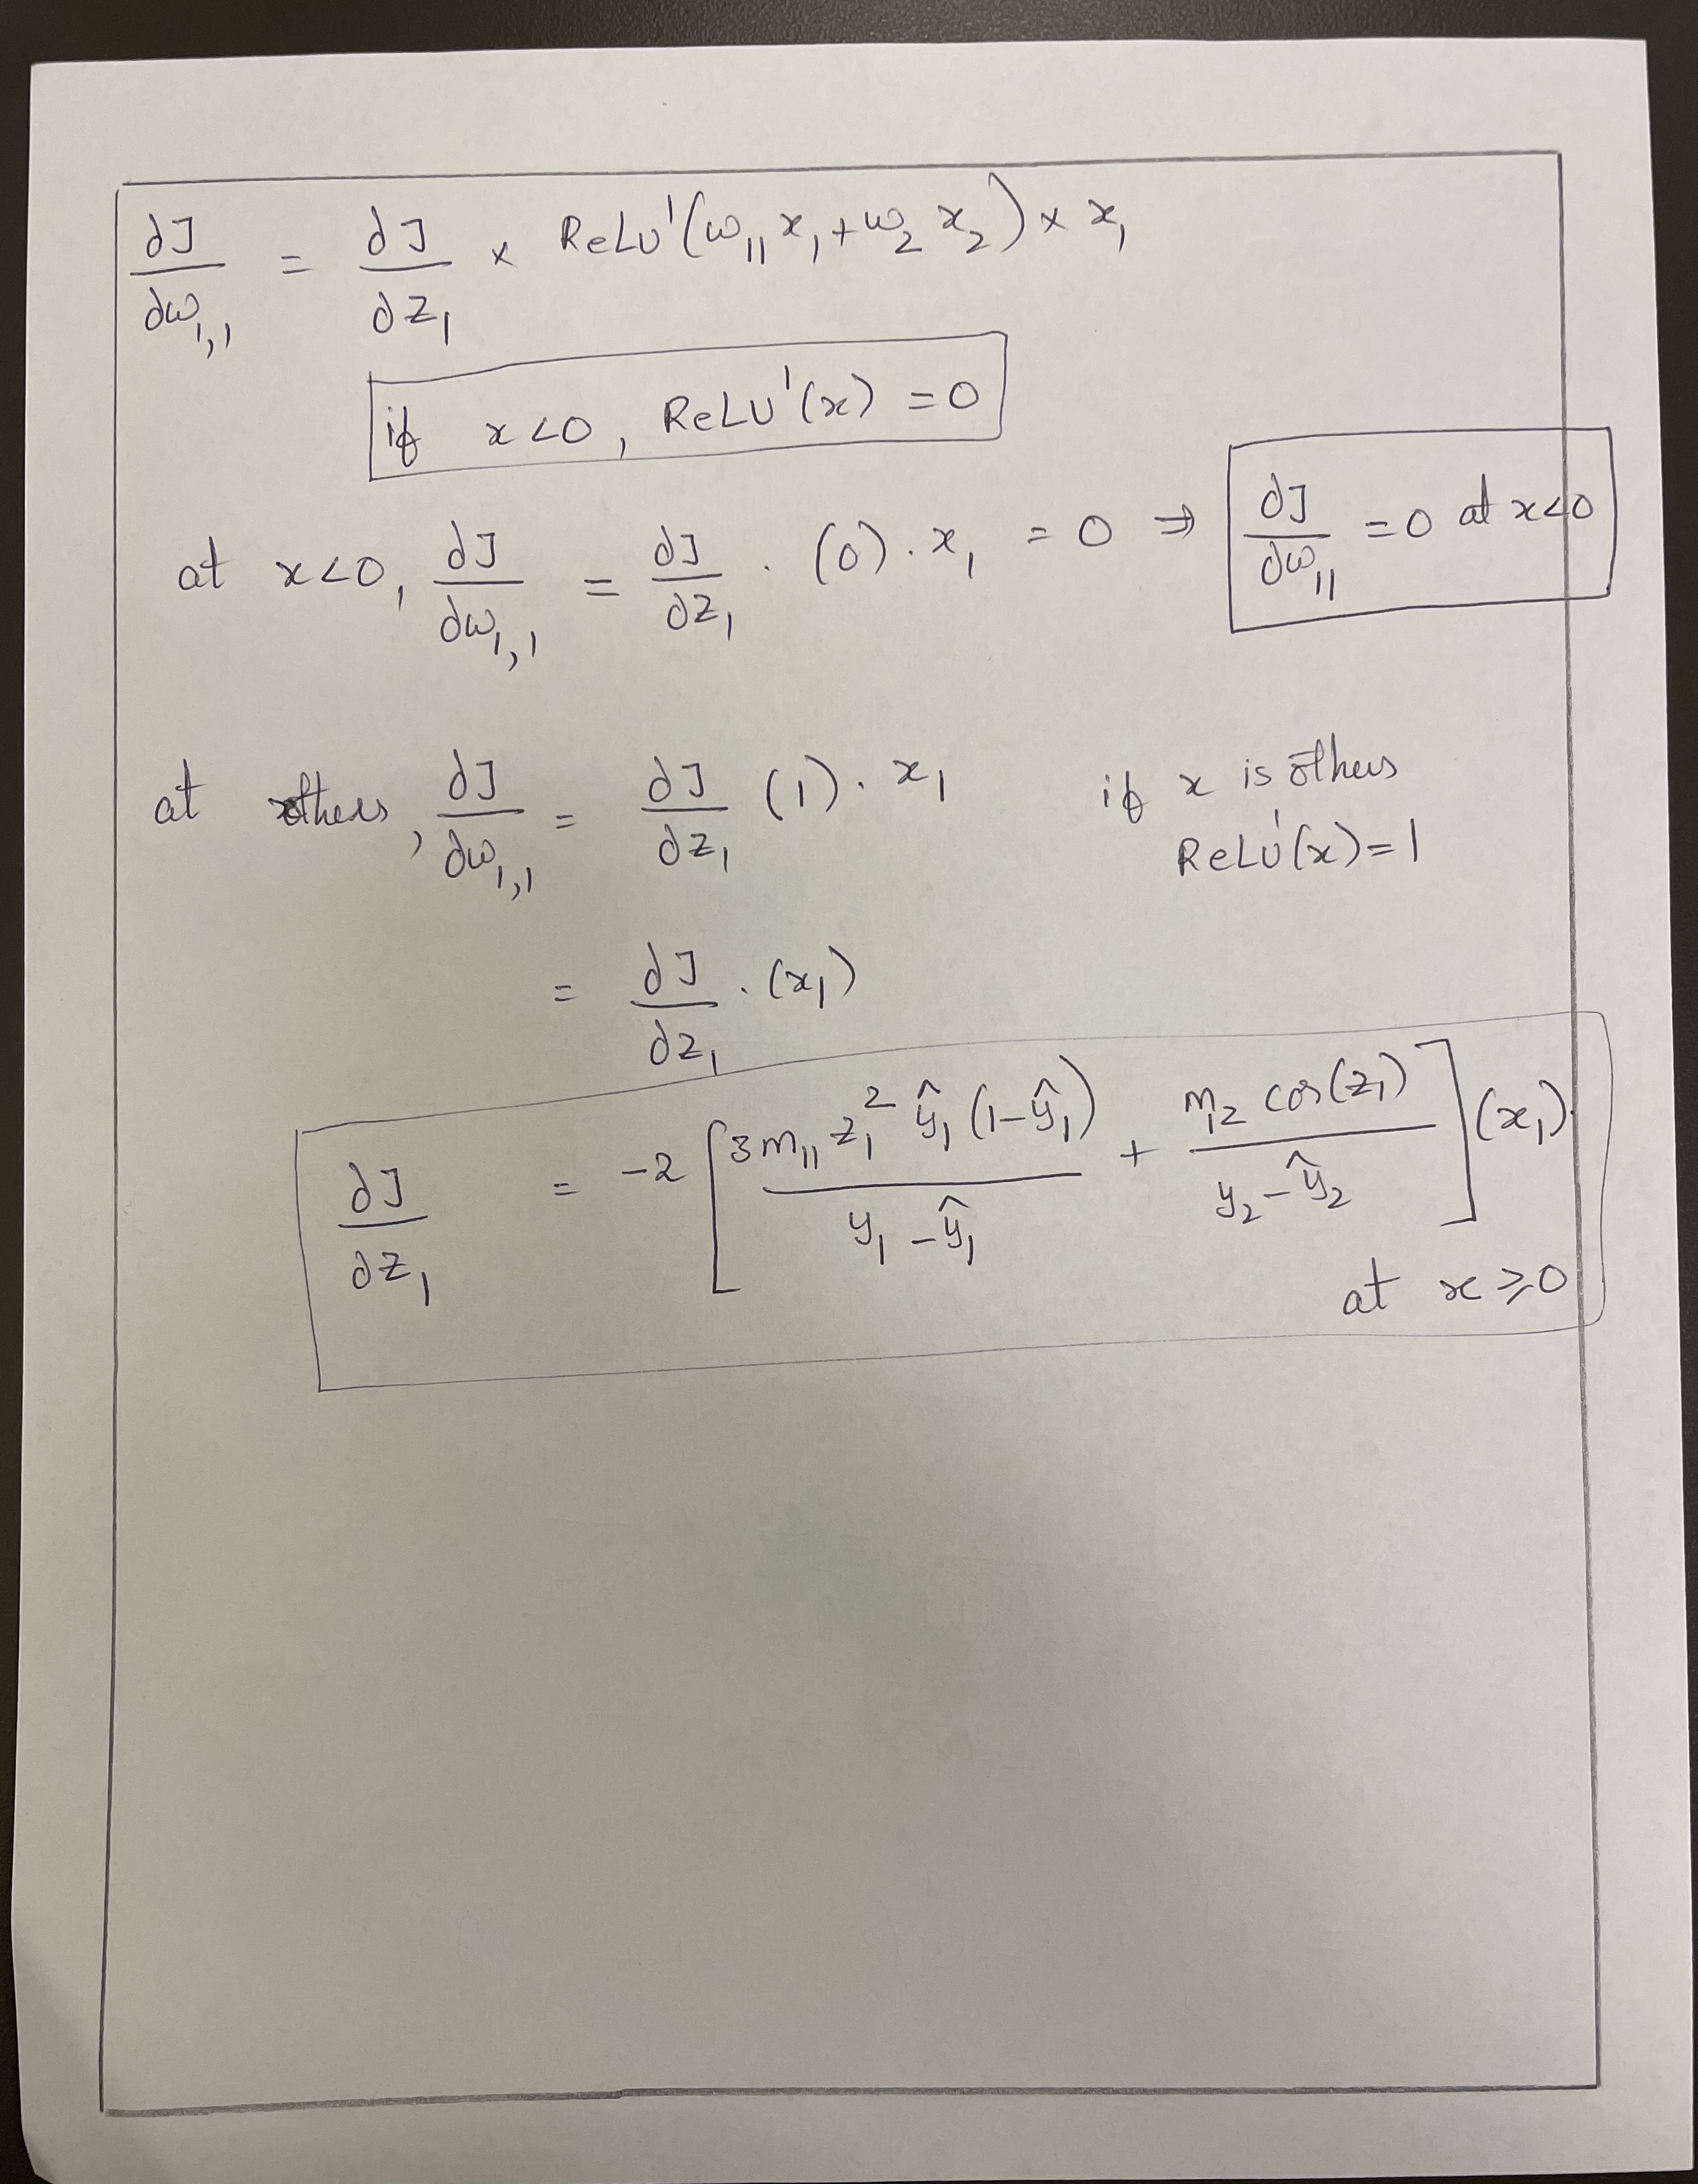 dJ/dω₁,₁ = dJ/dz₁ × ReLU'(ω₁₁x₁+ω₂x₂) × x₁
if x<0, ReLU'(x) = 0
at x<0, dJ/dω₁,₁ = dJ/dz₁ · (0) · x₁ = 0 ⇒ dJ/dω₁₁ = 0 at x<0
at others, dJ/dω₁,₁ = dJ/dz₁ (1) · x₁ if x is others
ReLU'(x)=1
= dJ/dz₁ · (x₁)
dJ/dz₁ = -2 [3m₁₁z₁²ŷ₁(1-ŷ₁)/(y₁-ŷ₁) + m₁₂cos(z₁)/(y₂-ŷ₂)] (x₁)
at x ≥ 0